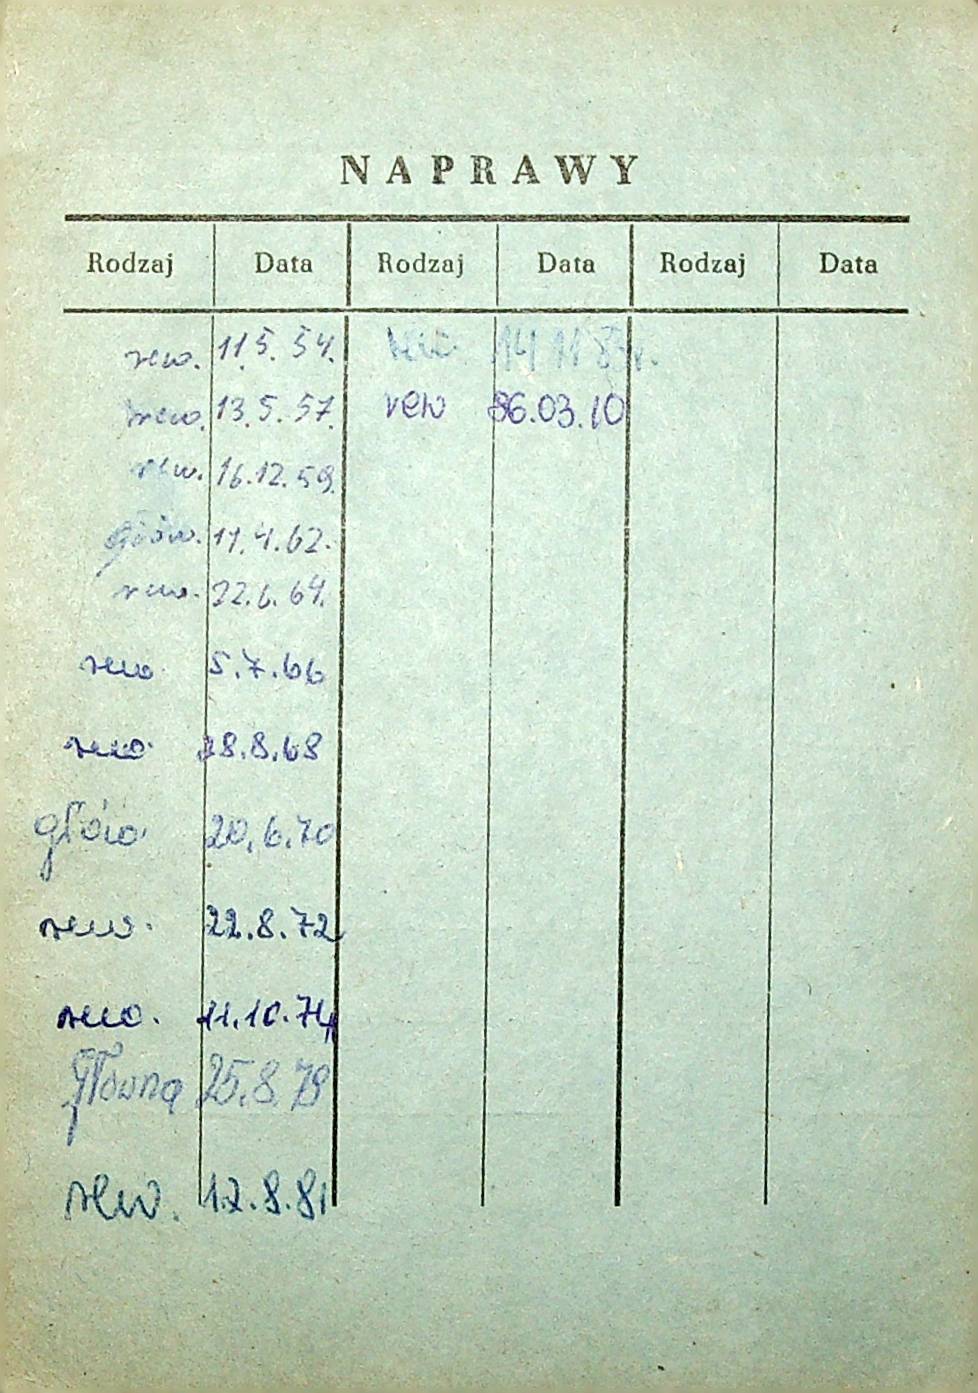 NAPRAWY
Rodzaj Data Rodzaj Data Rodzaj Data
rew. 11.5.54. rew. 14 11 83r.
rew. 13.5.57. rew 86.03.10
rew. 16.12.59.
głów. 11.4.62.
rew. 22.6.64.
rew 5.7.66
rew. 28.8.68
głów. 20.6.70
rew. 22.8.72
rew. 11.10.74
Główna 25.8.79
rew. 12.8.81